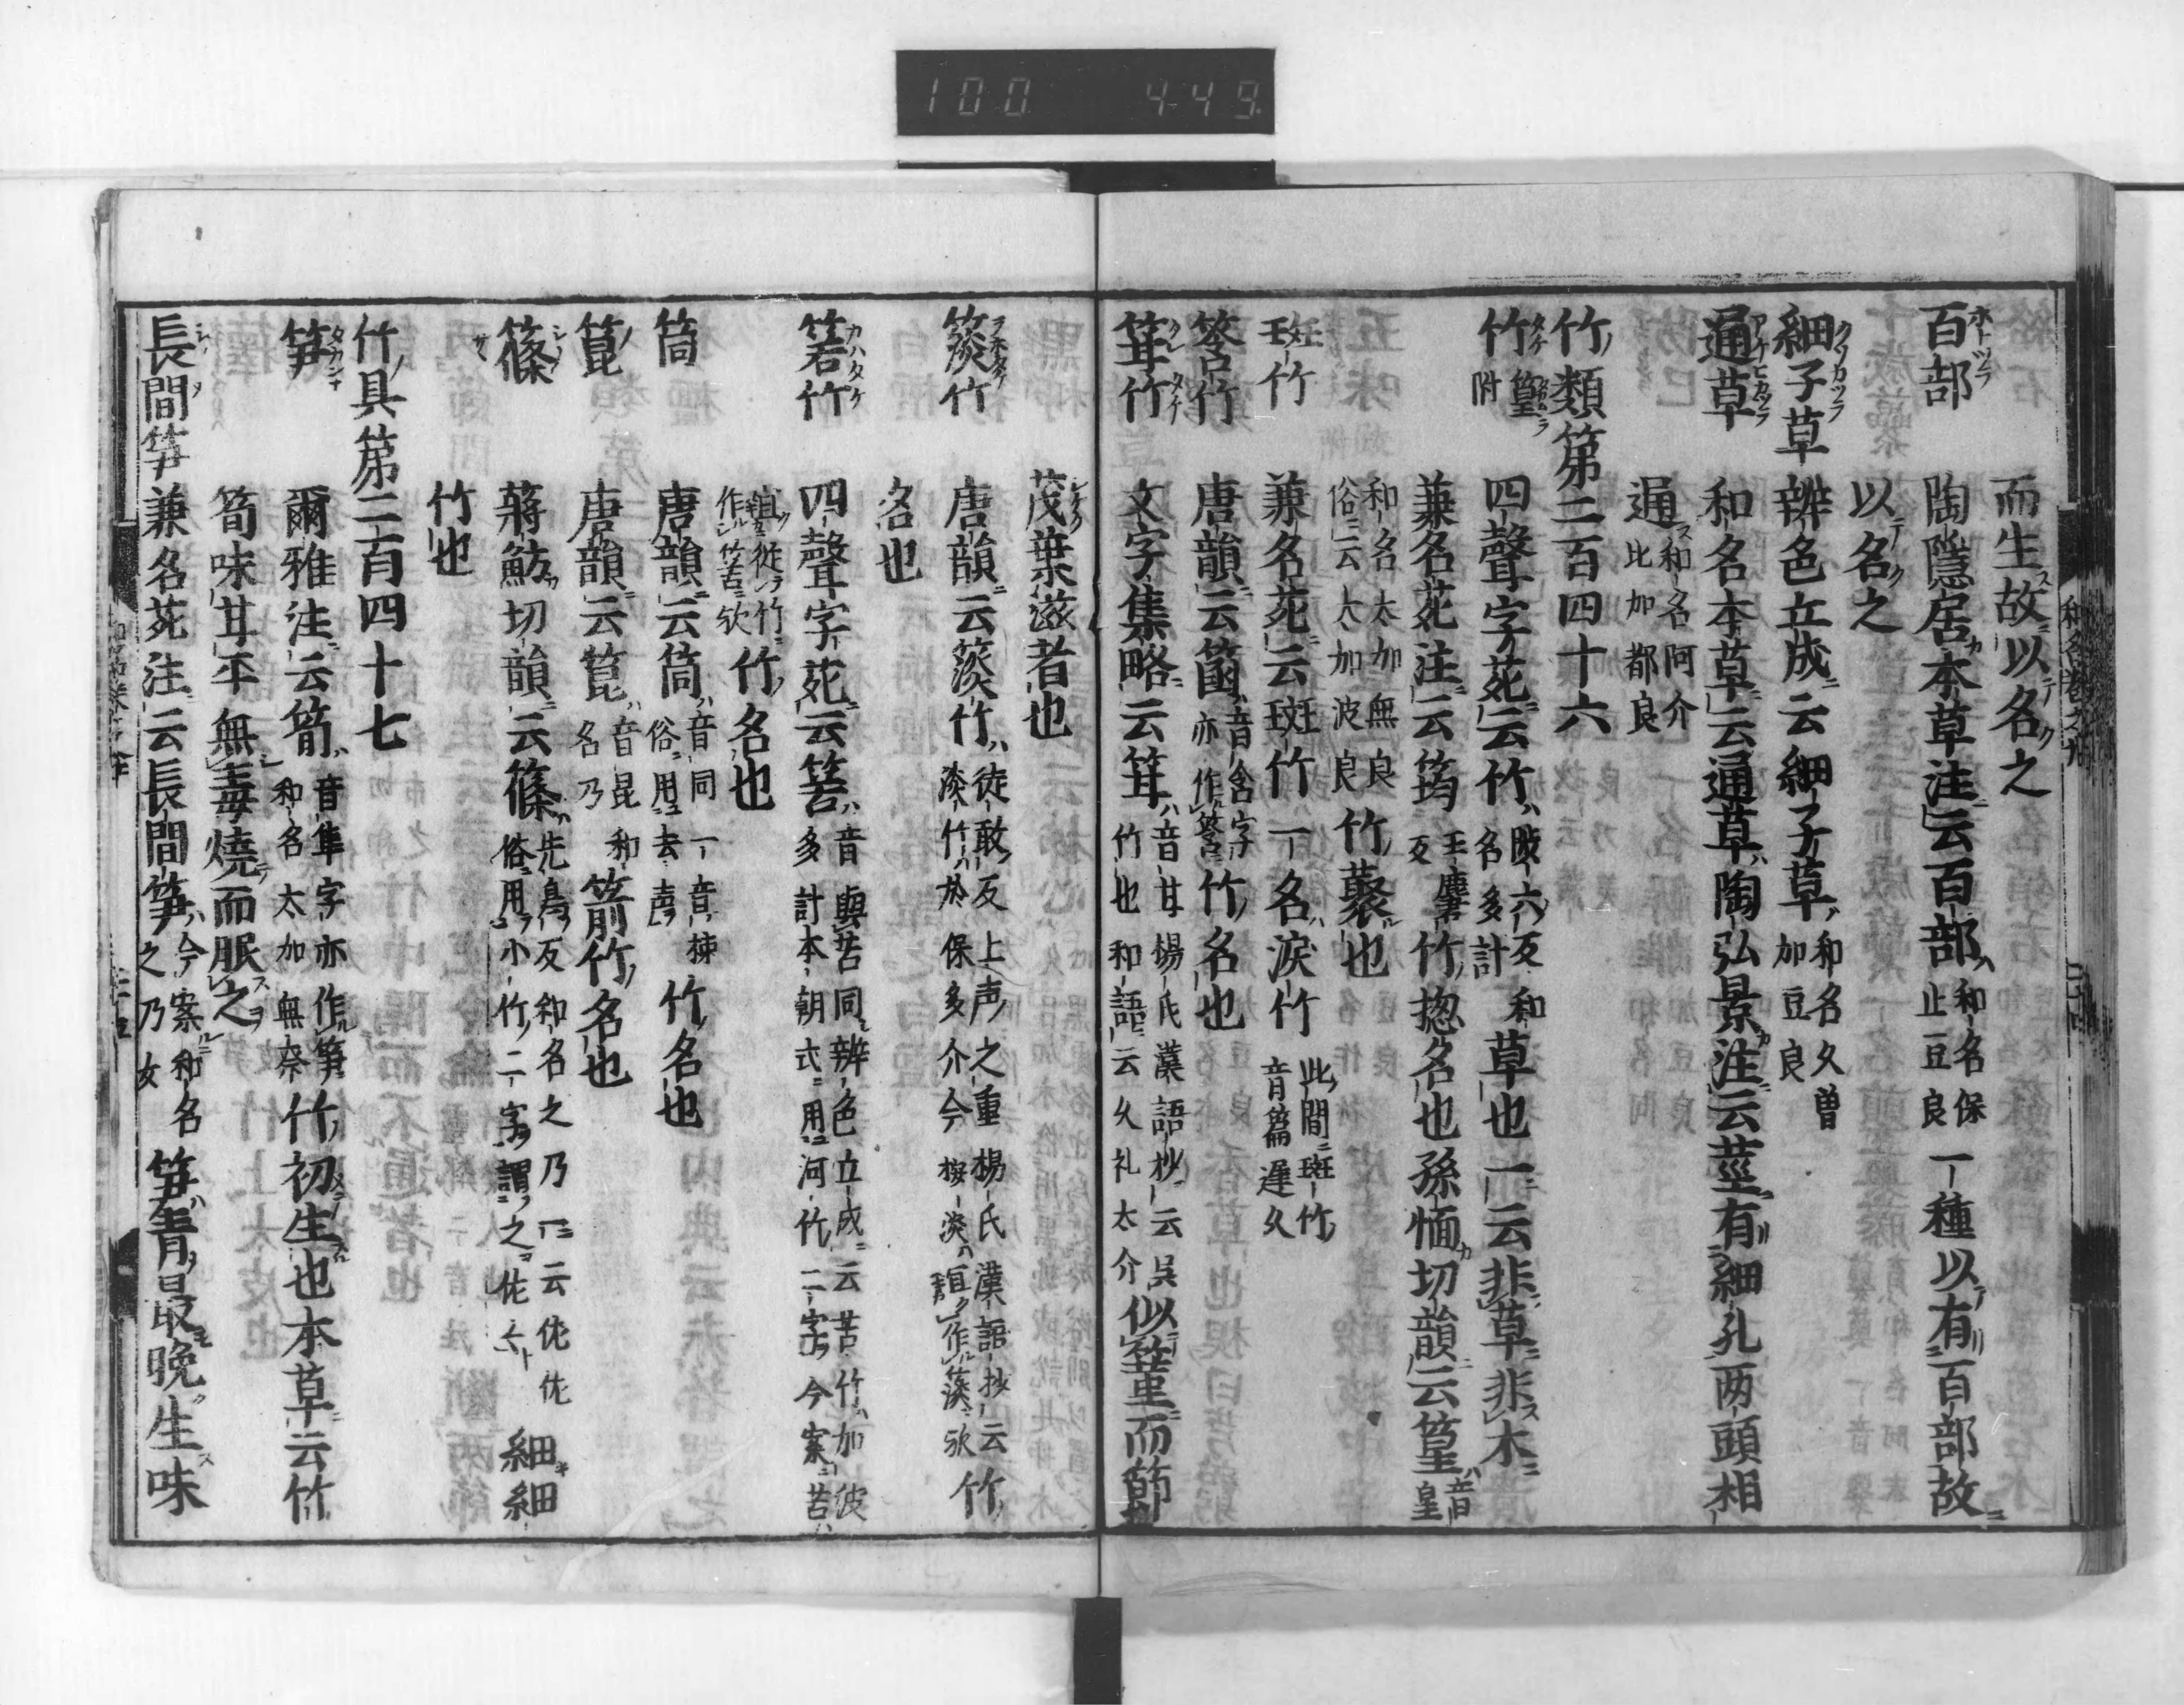 100 449
而生故以名之
百部 陶隱居本草注云百部和名保止豆良一種以有百部故
以名之
細子草 辨色立成云細子草和名久曽加豆良
通草 和名本草云通草陶弘景注云莖有細孔兩頭相
通和名阿介比加都良
竹類第二百四十六
竹篁附 四聲字苑云竹陟六反和名多計草也一云非草非木
兼名苑注云筠王麏反竹惣名也孫愐切韻云篁音皇
和名太加無良俗云太加波良竹藂也
𤦀竹 兼名苑云斑竹一名涙竹此間斑竹音篇遅久
筨竹 唐韻云箘音含字亦作筨竹名也
䇞竹 文字集略云䇞音甘楊氏漢語抄云呉竹也和語云久礼太介似篁而節
茂葉滋者也
䈊竹 唐韻云䈊竹徒敢反上声之重楊氏漢語抄云淡竹於保多介今按淡宜作䈊歟竹
名也
箬竹 四聲字苑云箬音與苦同辨色立成云苦竹加波多計本朝式用河竹二字今案苦
宜従竹作筈歟竹名也
筒 唐韻云筒音同一音棟俗用去声竹名也
箟 唐韻云箟音昆和名乃箭竹名也
篠 蔣魴切韻云篠先鳥反和名之乃一云佐佐俗用小竹二字謂之佐々細細
竹也
竹具第二百四十七
笋 爾雅注云筍音隼字亦作笋和名太加無奈竹初生也本草云竹
筍味甘平無毒燒而服之
長間笋 兼名苑注云長間笋今案和名之乃女笋青最晩生味